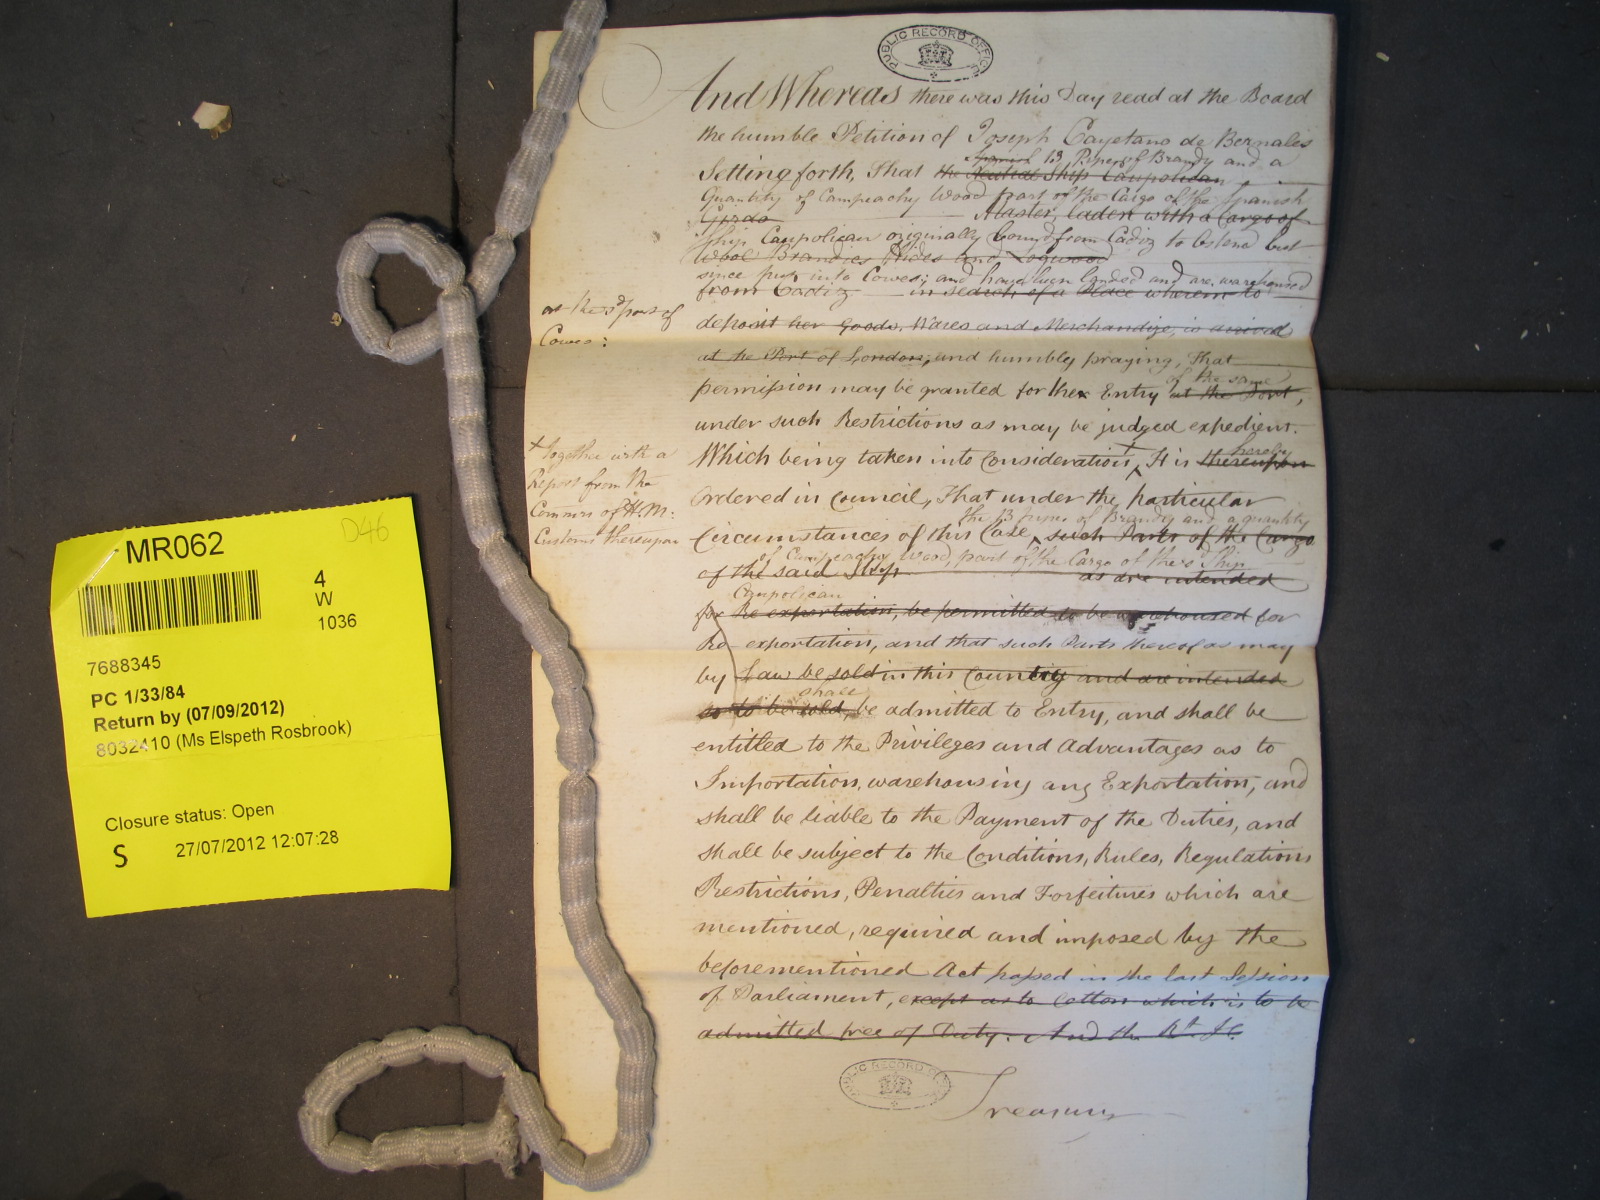 PUBLIC RECORD OFFICE
And Whereas there was this Day read at the Board
the humble Petition of Joseph Cayetano de Bernales
13 Pipes of Brandy and a
Setting forth, That the Neutral Ship Caupolican
Quantity of Campeachy Wood part of the Cargo of the Spanish
Master, laden with a Cargo of
Ship Caupolican originally bound from Cadiz to Ostend but
Wool Brandies Hides and Logwood
since put into Cowes; and have been landed and are warehoused
from Cadiz in search of a Place wherein to
at the sd port of
Cowes:
deposit her Goods, Wares and Merchandize, is arrived
at the Port of London, and humbly praying, That
of the same
permission may be granted for the Entry at the Port,
under such Restrictions as may be judged expedient.
hereby
Which being taken into Consideration, + It is thereupon
+ together with a
Report from the
Commrs of H.M:
Customs thereupon
Ordered in Council, That under the particular
the 13 pipes of Brandy and a quantity
Circumstances of this Case, such Parts of the Cargo
of Campeachy Wood, part of the Cargo of the sd Ship
of the said Ship as are intended
Caupolican
for Re-exportation, be permitted to be warehoused for
Re-exportation, and that such Parts thereof as may
by Law be sold in this Country and are intended
shall
so to be sold, be admitted to Entry, and shall be
entitled to the Privileges and Advantages as to
Importation, warehousing and Exportation, and
shall be liable to the Payment of the Duties, and
shall be subject to the Conditions, Rules, Regulations
Restrictions, Penalties and Forfeitures which are
mentioned, required and imposed by the
beforementioned Act passed in the last Session
of Parliament, except as to Cotton which is to be
admitted free of Duty. And the Rt. &c.
PUBLIC RECORD OFFICE
Treasury
MR062
D46
4
W
1036
7688345
PC 1/33/84
Return by (07/09/2012)
8032410 (Ms Elspeth Rosbrook)
Closure status: Open
S 27/07/2012 12:07:28